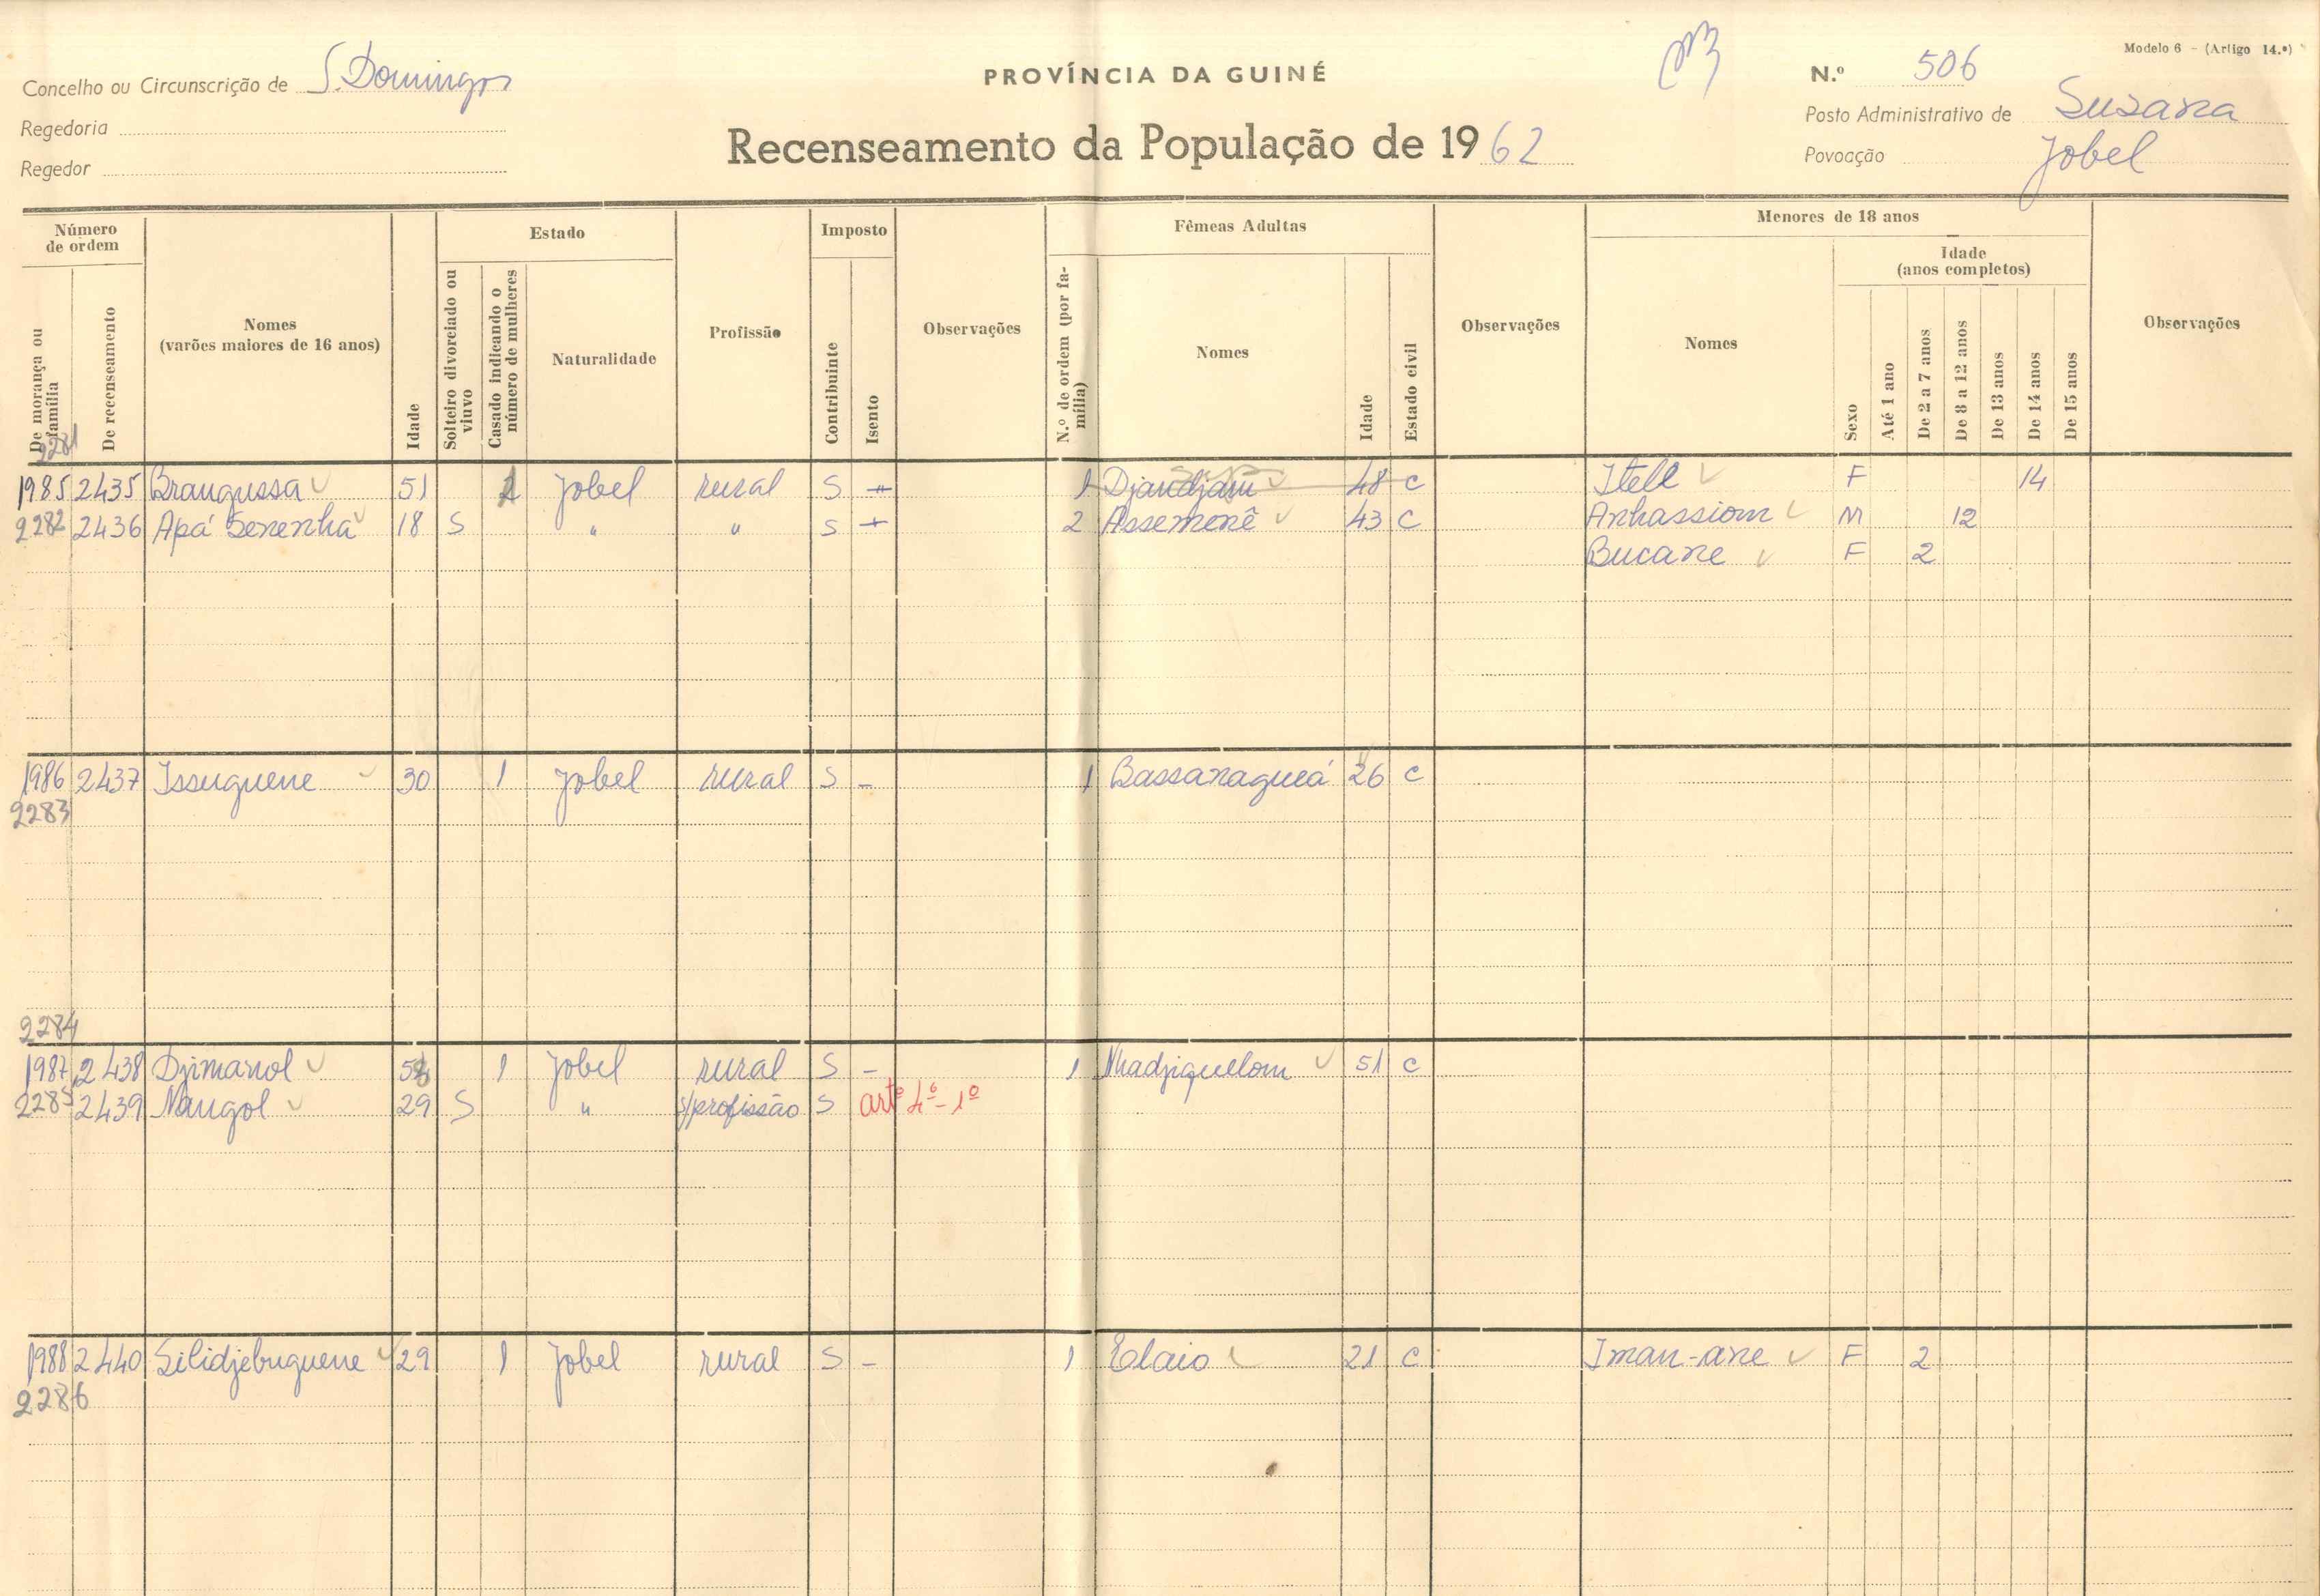 Modelo 6 - (Artigo 14.º)
Concelho ou Circunscrição de S. Domingos
PROVÍNCIA DA GUINÉ
N.º 506
Regedoria
Posto Administrativo de Suzana
Regedor
Recenseamento da População de 1962
Povoação Jobel
Número de ordem
De morança ou família
De recenseamento
Nomes
(varões maiores de 16 anos)
Idade
Estado
Solteiro divorciado ou viuvo
Casado indicando o número de mulheres
Naturalidade
Profissão
Imposto
Contribuinte
Isento
Observações
N.º de ordem (por família)
Fêmeas Adultas
Nomes
Idade
Estado civil
Observações
Menores de 18 anos
Nomes
Sexo
Idade
(anos completos)
Até 1 ano
De 2 a 7 anos
De 8 a 12 anos
De 13 anos
De 14 anos
De 15 anos
Observações
2281
1985 2435 Brangussa 51 Jobel rural S - 1 Djandjam 48 C Itell F 14
2282 2436 Apá Senenha 18 S " " S - 2 Assemenê 43 C Anhassiom M 12
Bucane F 2
1986 2437 Issuguene 30 1 Jobel rural S - 1 Bassanagueá 26 C
2283
2284
1987 2438 Djimanol 1 Jobel rural S - 1 Nhadjiquelom 51 C
2285 2439 Nangol 29 S " s/profissão S artº 4º - 1º
1988 2440 Silidjebuguene 29 1 Jobel rural S - 1 Elaio 21 C Iman-ane F 2
2286